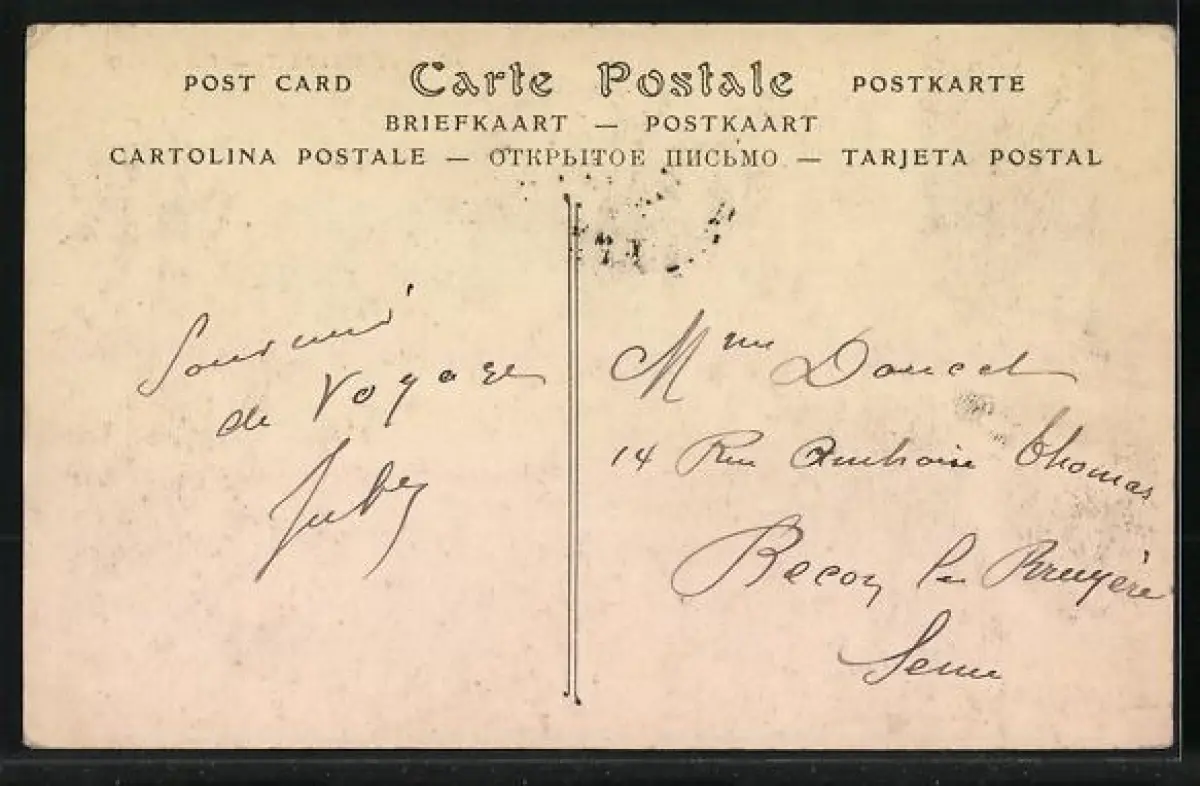 POST CARD Carte Postale POSTKARTE
BRIEFKAART — POSTKAART
CARTOLINA POSTALE — ОТКРЫТОЕ ПИСЬМО — TARJETA POSTAL
Souvenir
de Voyage
Mme Doucet
14 Rue Ambroise Thomas
Becon les Bruyère
Seine